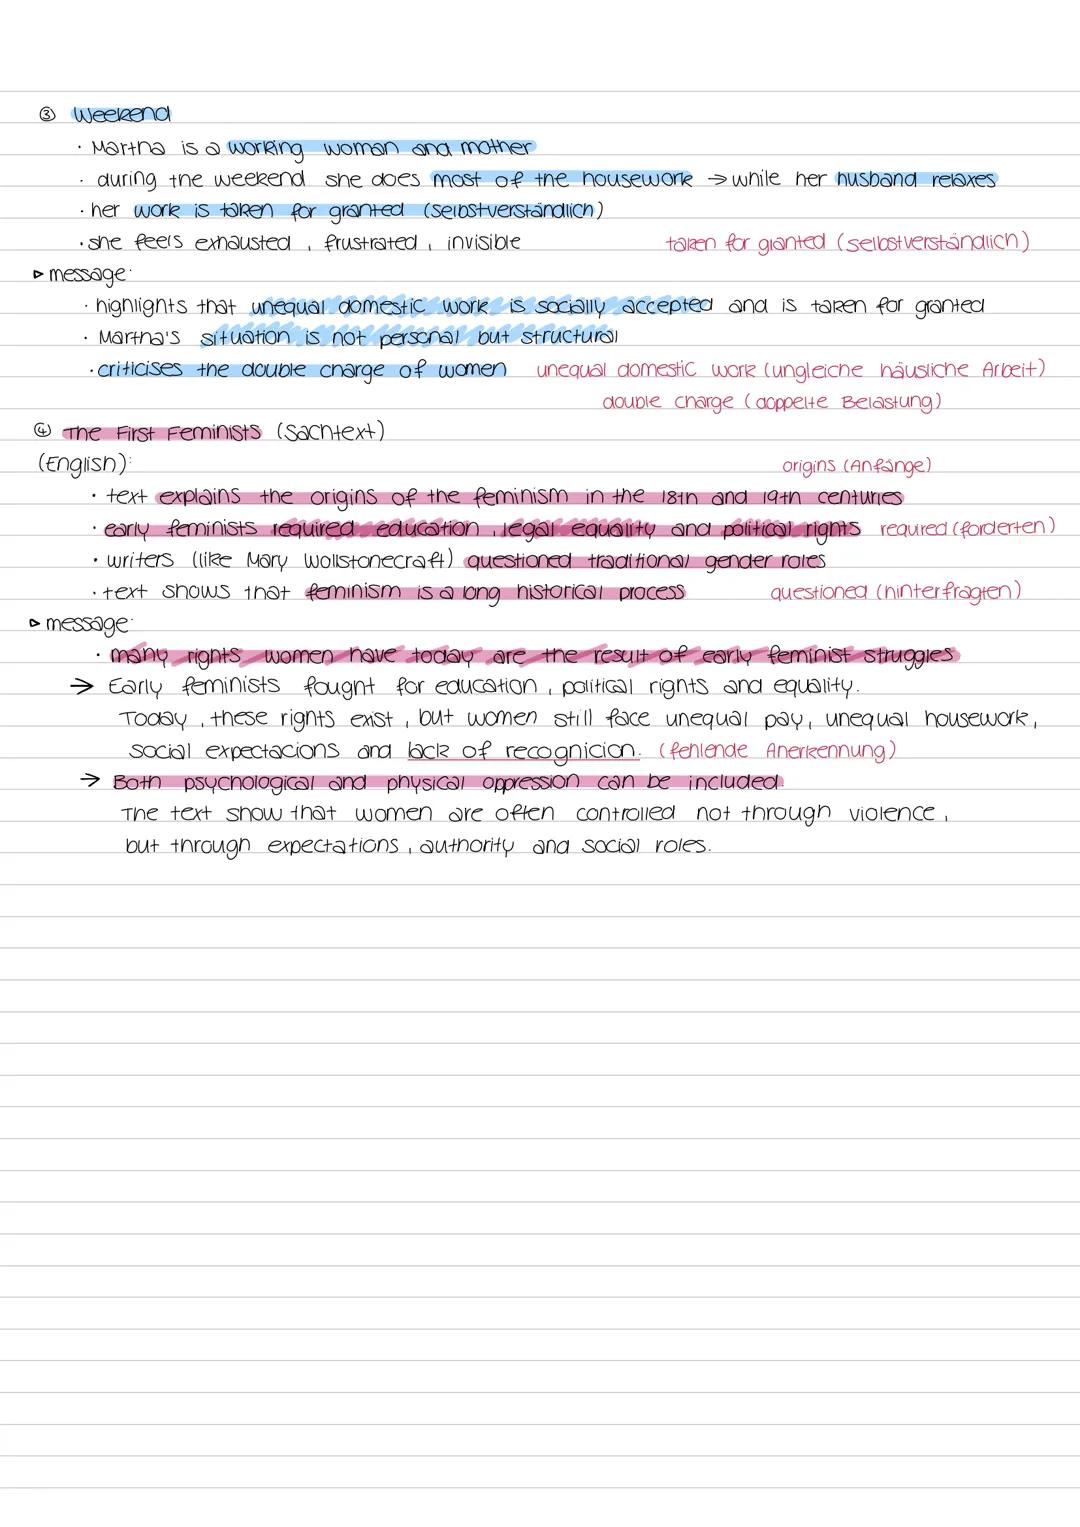 ③ Weekend
· Martha is a working woman and mother
· during the weekend she does most of the housework → while her husband relaxes
· her work is taken for granted (selbstverständlich)
· she feels exhausted, frustrated, invisible taken for granted (selbstverständlich)
▹ message:
· highlights that unequal domestic work is socially accepted and is taken for granted
· Martha's situation is not personal but structural
· criticises the double charge of women unequal domestic work (ungleiche häusliche Arbeit)
double charge (doppelte Belastung)
④ The First Feminists (Sachtext)
(English): origins (Anfänge)
· text explains the origins of the feminism in the 18th and 19th centuries
· early feminists required education, legal equality and political rights required (forderten)
· writers (like Mary Wollstonecraft) questioned traditional gender roles
· text shows that feminism is a long historical process questioned (hinterfragten)
▹ message:
· many rights women have today are the result of early feminist struggles
→ Early feminists fought for education, political rights and equality.
Today, these rights exist, but women still face unequal pay, unequal housework,
social expectacions and lack of recognicion. (fehlende Anerkennung)
→ Both psychological and physical oppression can be included.
The text show that women are often controlled not through violence,
but through expectations, authority and social roles.